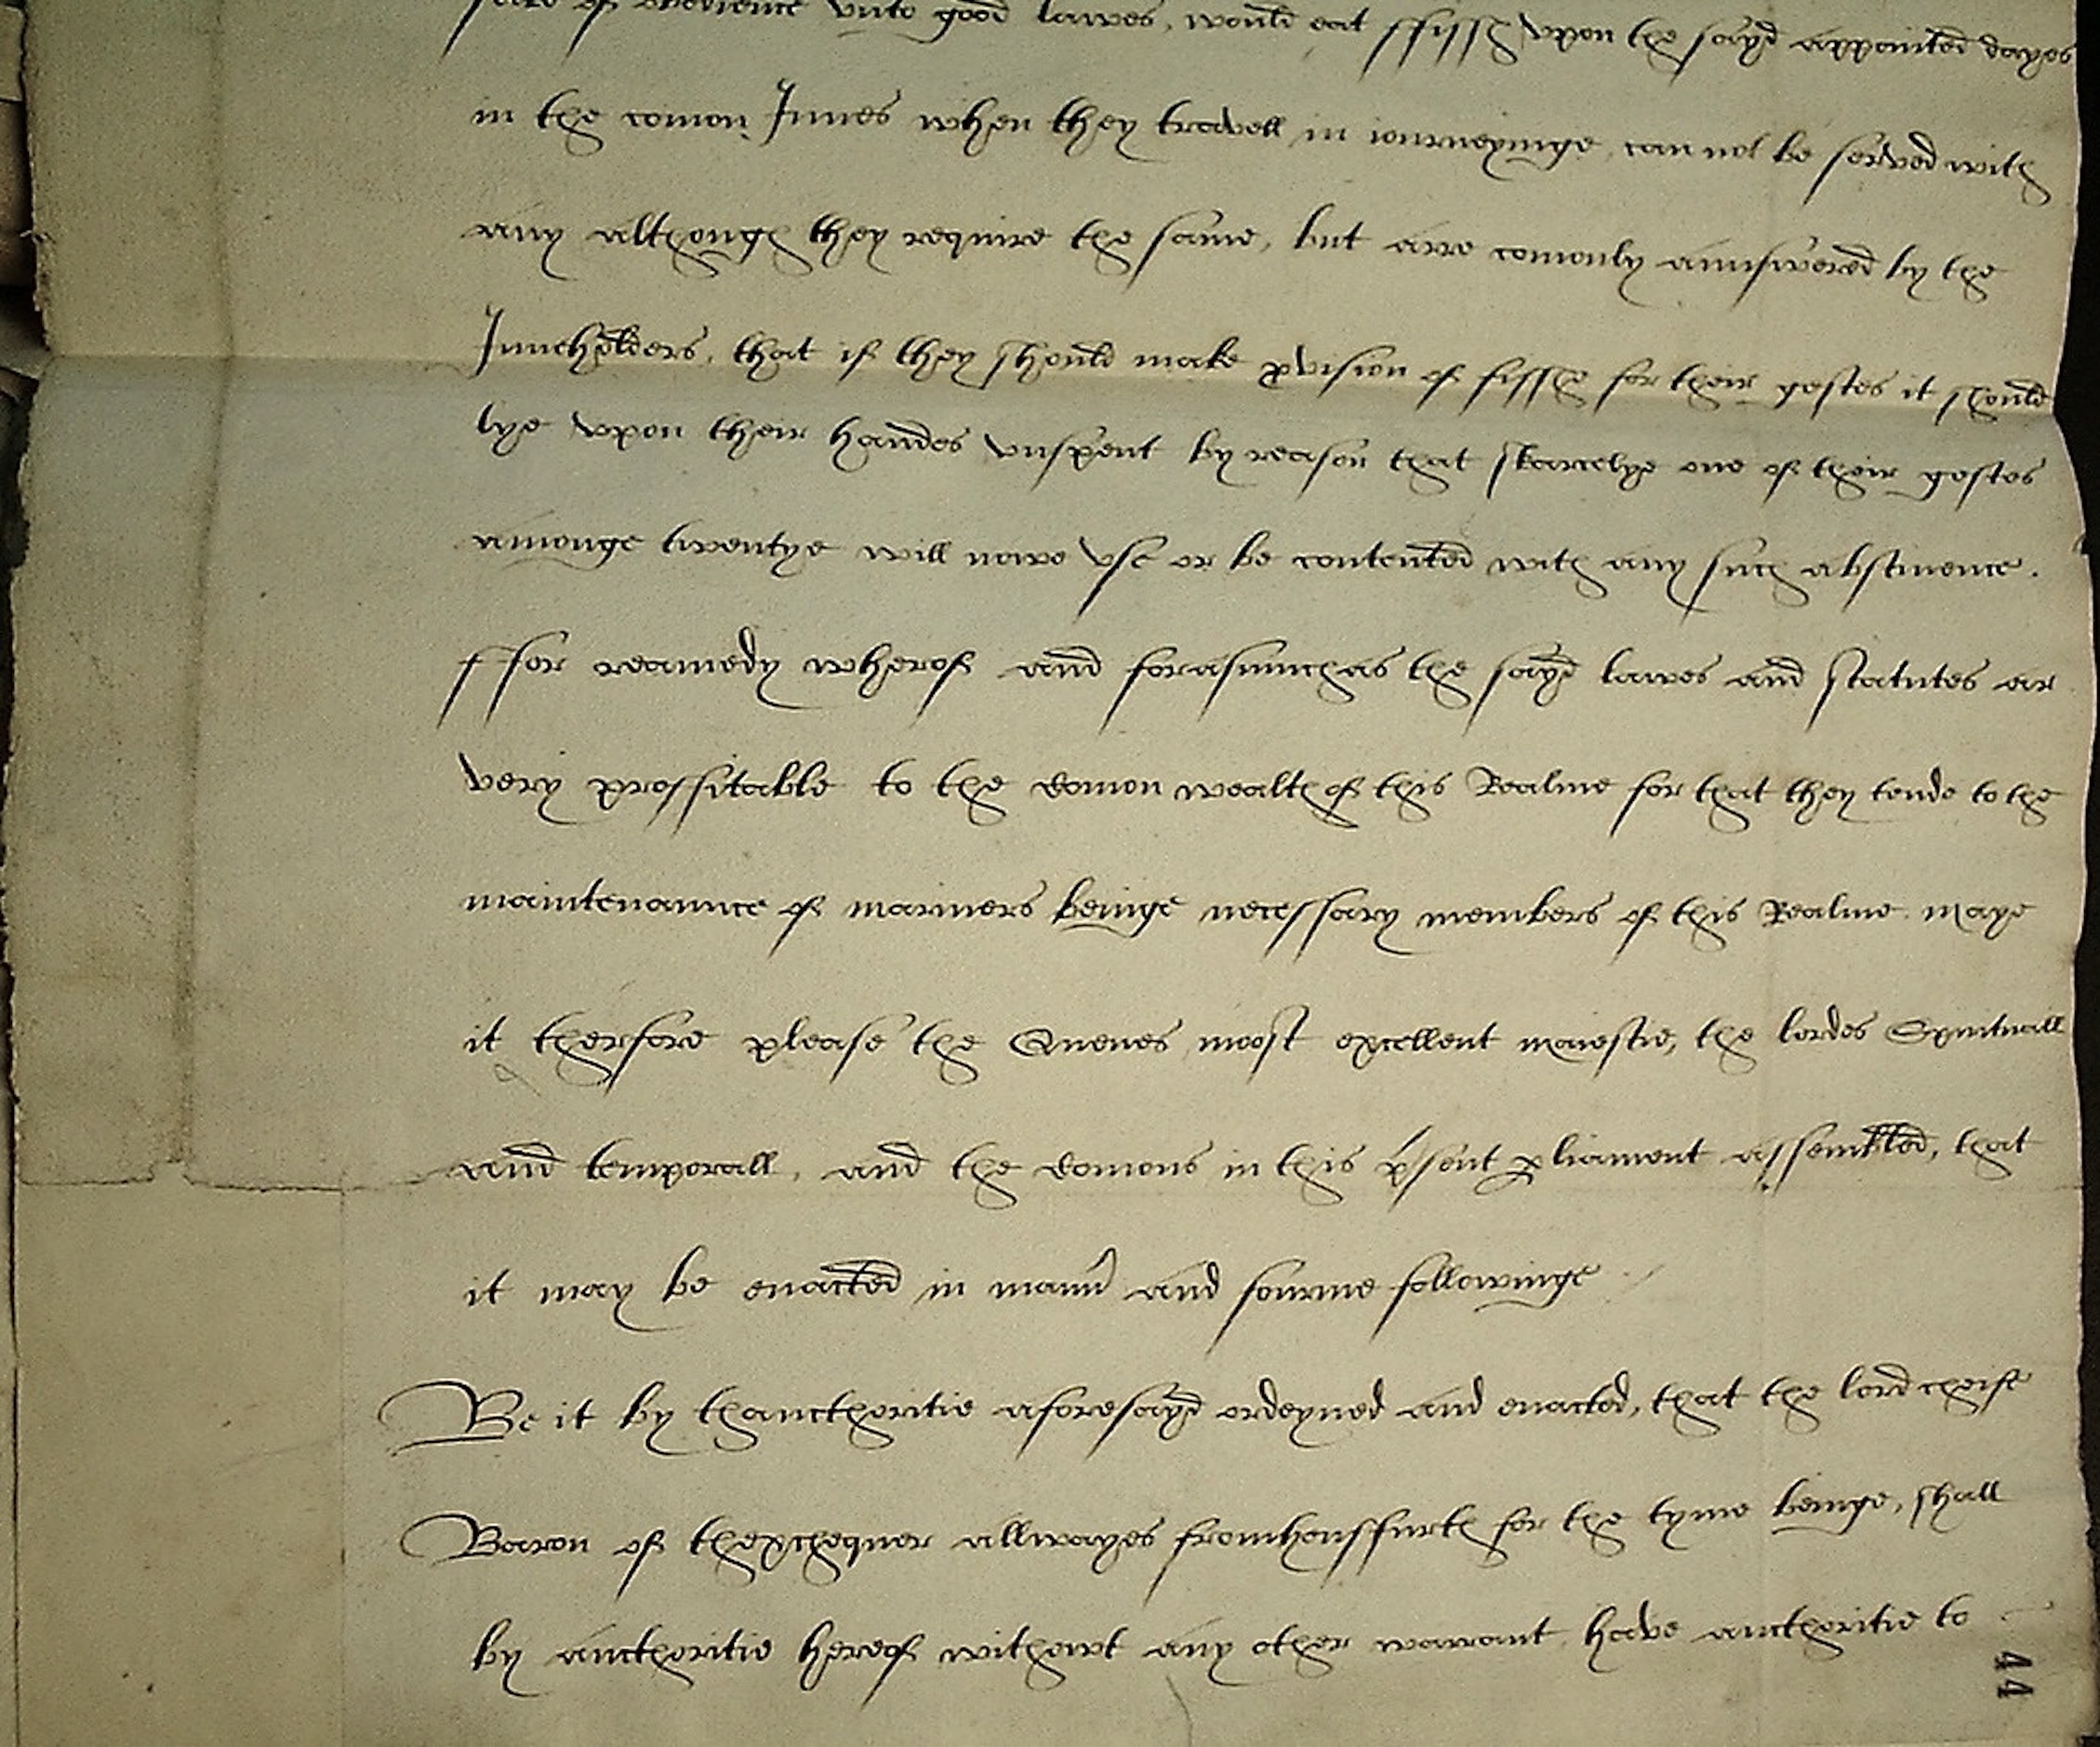 sake of obedience vnto good lawes, would eat ffissh vpon the sayd appointed dayes
in the comon Innes when they travell in iourneyinge, can not be served with
any although they require the same, but arre comonly aunswered by the
Inneholders, that if they should make pvision of fisshe for their gestes it should
lye vpon their handes vnspent by reason that skarcelye one of their gestes
amonge twentye will nowe vse or be contented with any such abstinence.
ffor reamedy wherof and forasmuch as the sayd lawes and statutes ar
very proffitable to the comon wealth of this Realme for that they tende to the
maintenaunce of mariners beinge necessary members of this Realme. maye
it therfore please the Quenes moost excellent maiestie, the lordes Spirituall
and temporall, and the comons in this psent pliament assembled, that
it may be enacted in mann and fourme followinge
Be it by thauctheritie aforesayd ordeyned and enacted, that the lord cheife
Baron of thexchequer allwayes fromhensfurth for the tyme beinge, shall
by auctheritie hereof withowt any other warrant have auctheritie to
44